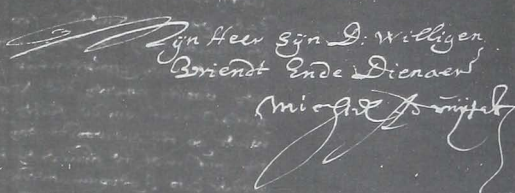 Mijn Heer Sijn D: willigen
Vriendt Ende Dienaer
Michiel A d Ruijter